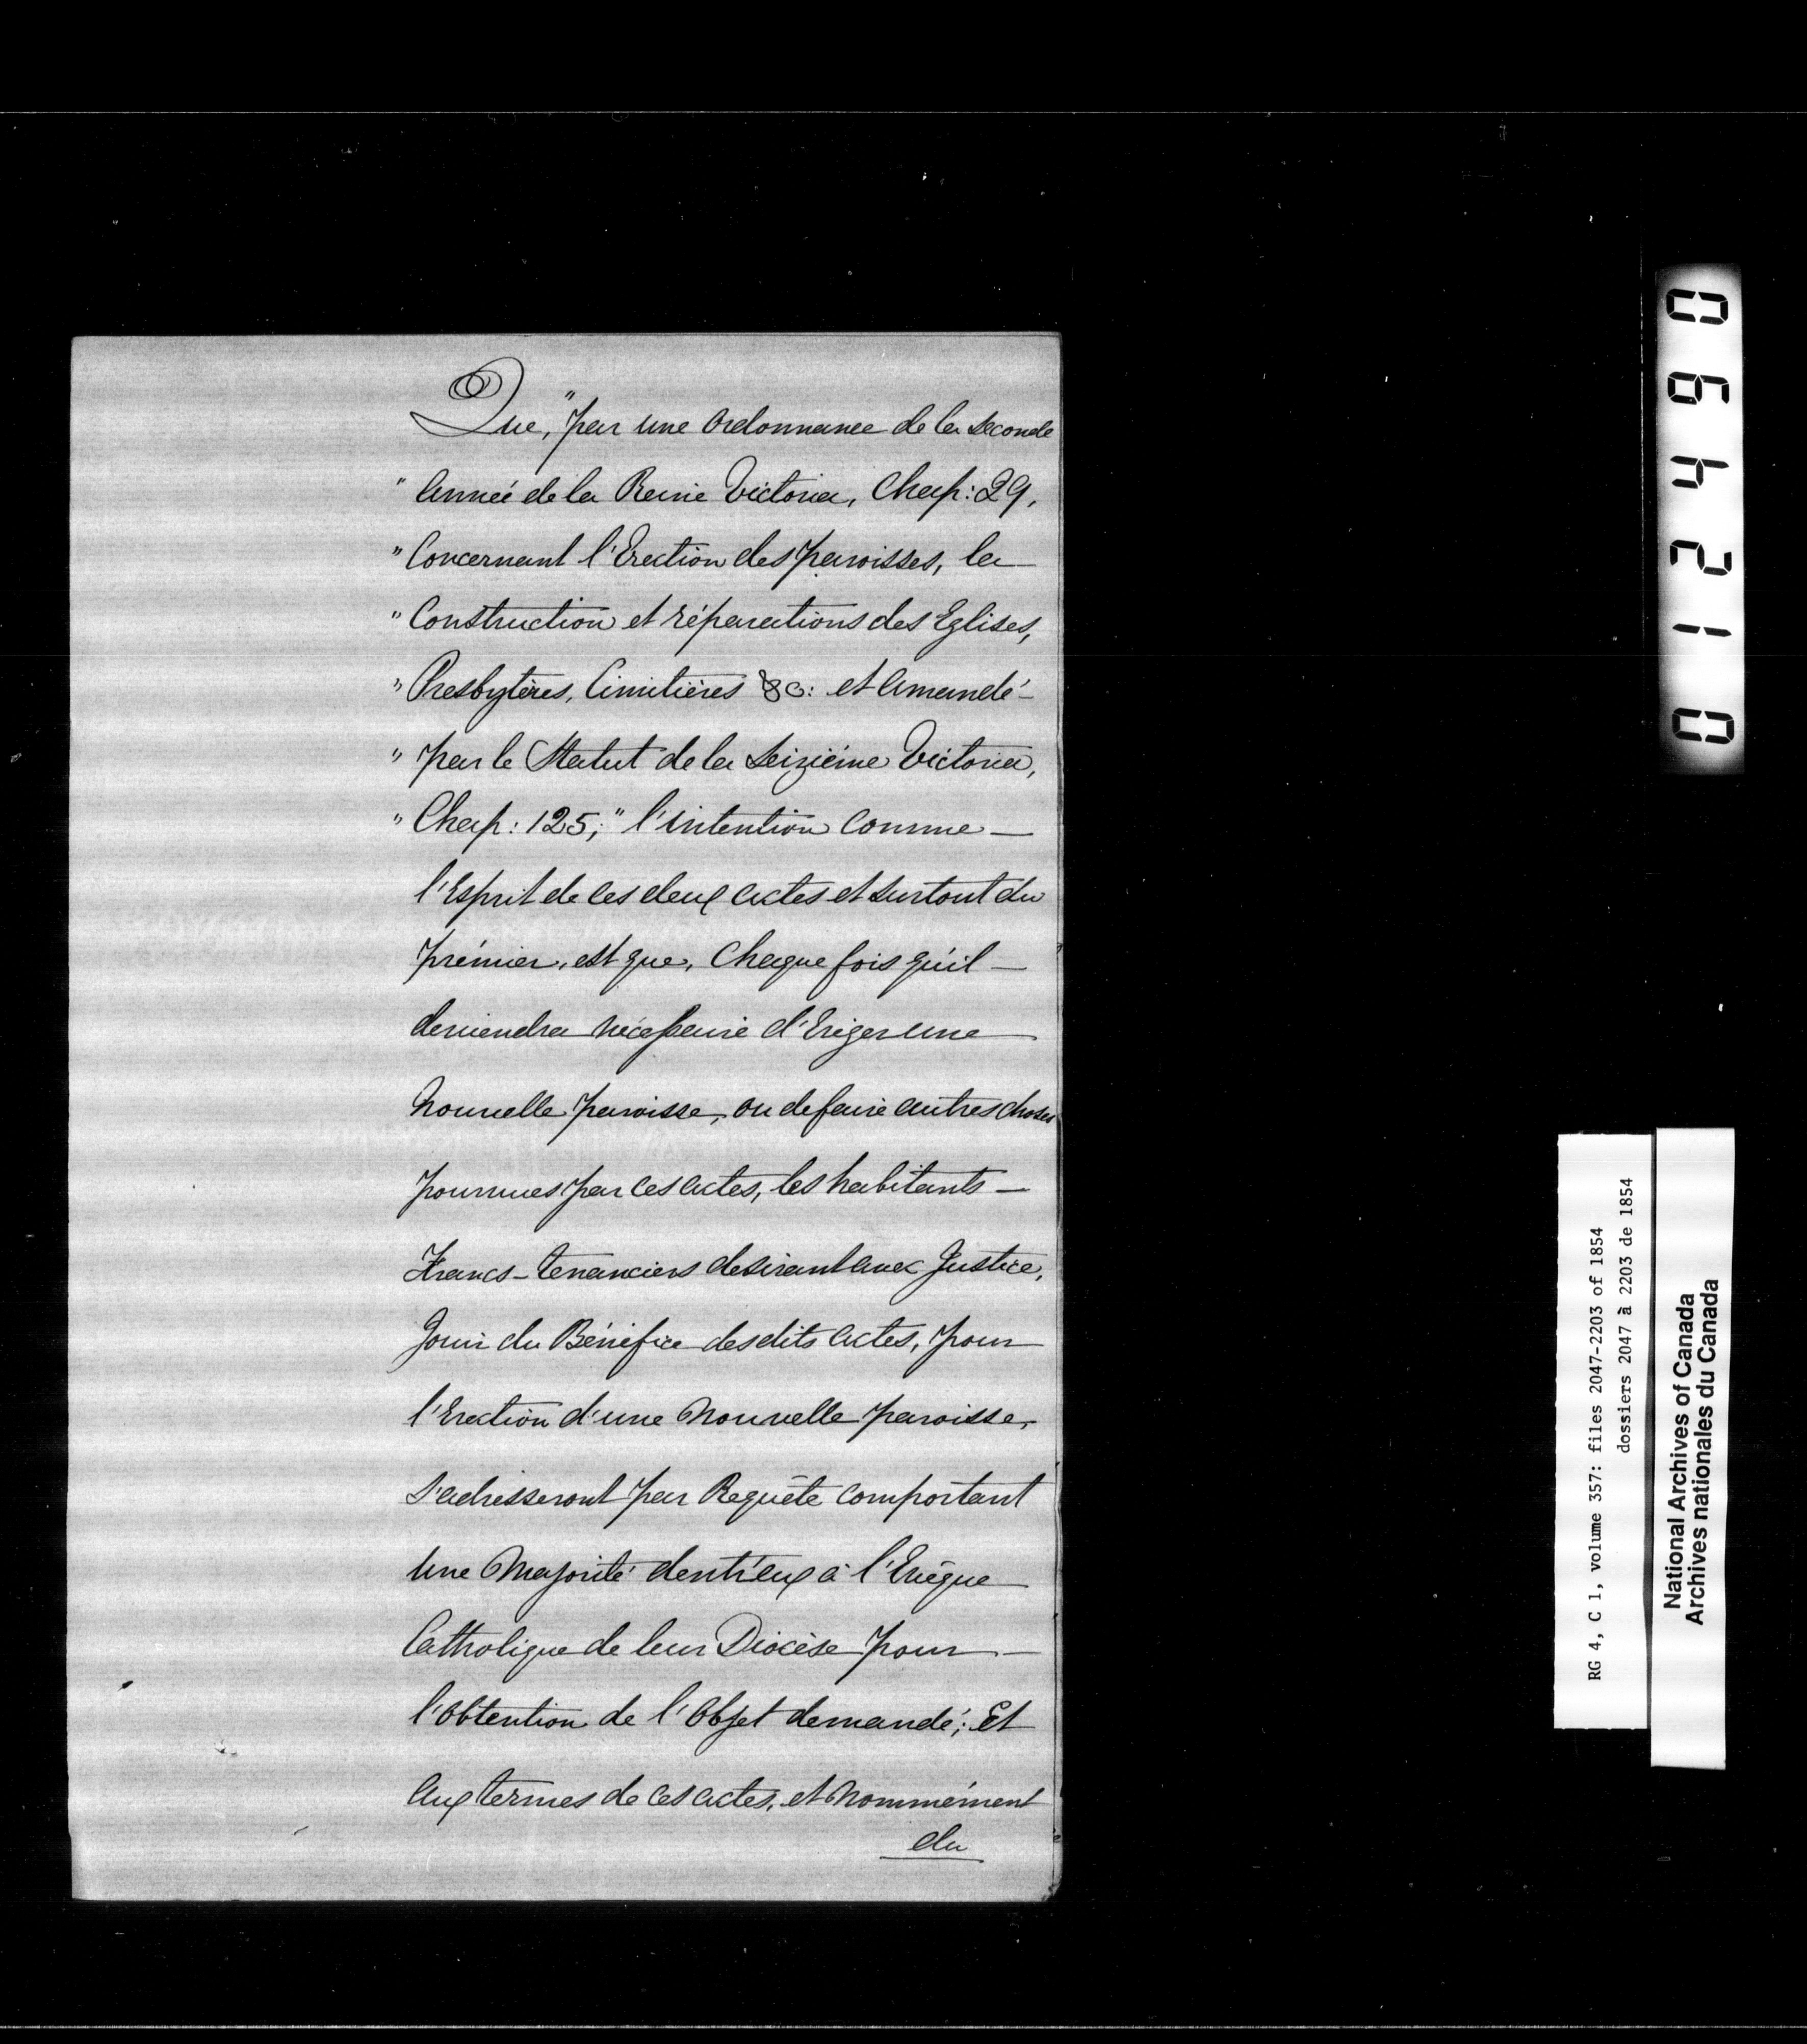 Que, "par une Ordonnance de la Seconde
" Année de la Reine Victoria, Chap: 29,
" Concernant l'Erection des paroisses, la
" Construction et réparations des Eglises,
" Presbytères, Cimitières &c: et Amandé
" par le Statut de la Seizième Victoria,
" Chap: 125;" l'intention comme
l'Esprit de ces deux actes et surtout du
prémier, est que, Chaque fois qu'il
deviendra nécessaire d'Eriger une
Nouvelle paroisse, ou de faire autres choses
pourvues par ces actes, les habitants
Francs-tenanciers desirant avec Justice,
Jouir du Bénéfice desdits actes, pour
l'Erection d'une Nouvelle paroisse,
s'adresseront par Requête comportant
Une Majorité dentr'eux à l'Evêque
Catholique de leur Diocèse pour
l'Obtention de l'Objet demandé; Et
Aux termes de ces actes, et Nommément
du
0 6 4 2 1 0
RG 4, C 1, volume 357: files 2047-2203 of 1854
dossiers 2047 à 2203 de 1854
National Archives of Canada
Archives nationales du Canada